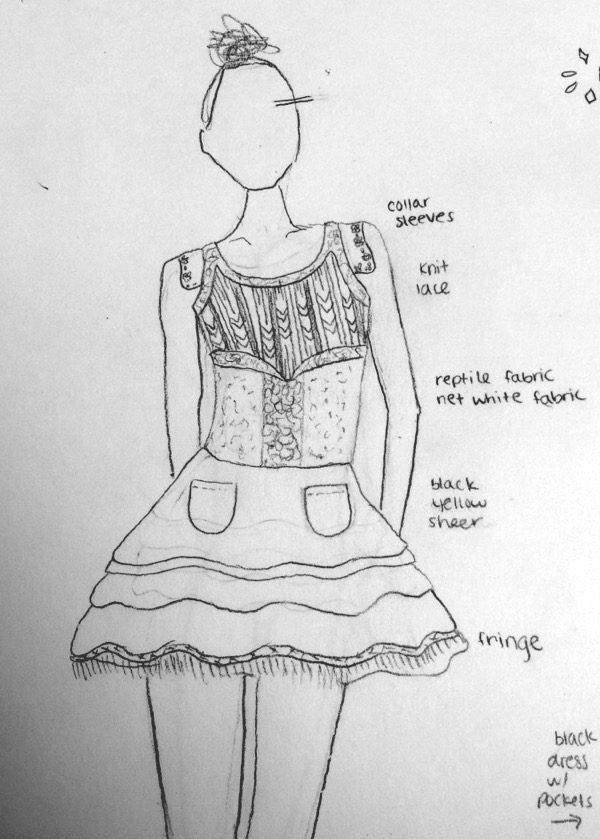 collar
sleeves
knit
lace
reptile fabric
net white fabric
black
yellow
sheer
fringe
black
dress
w/
pockets